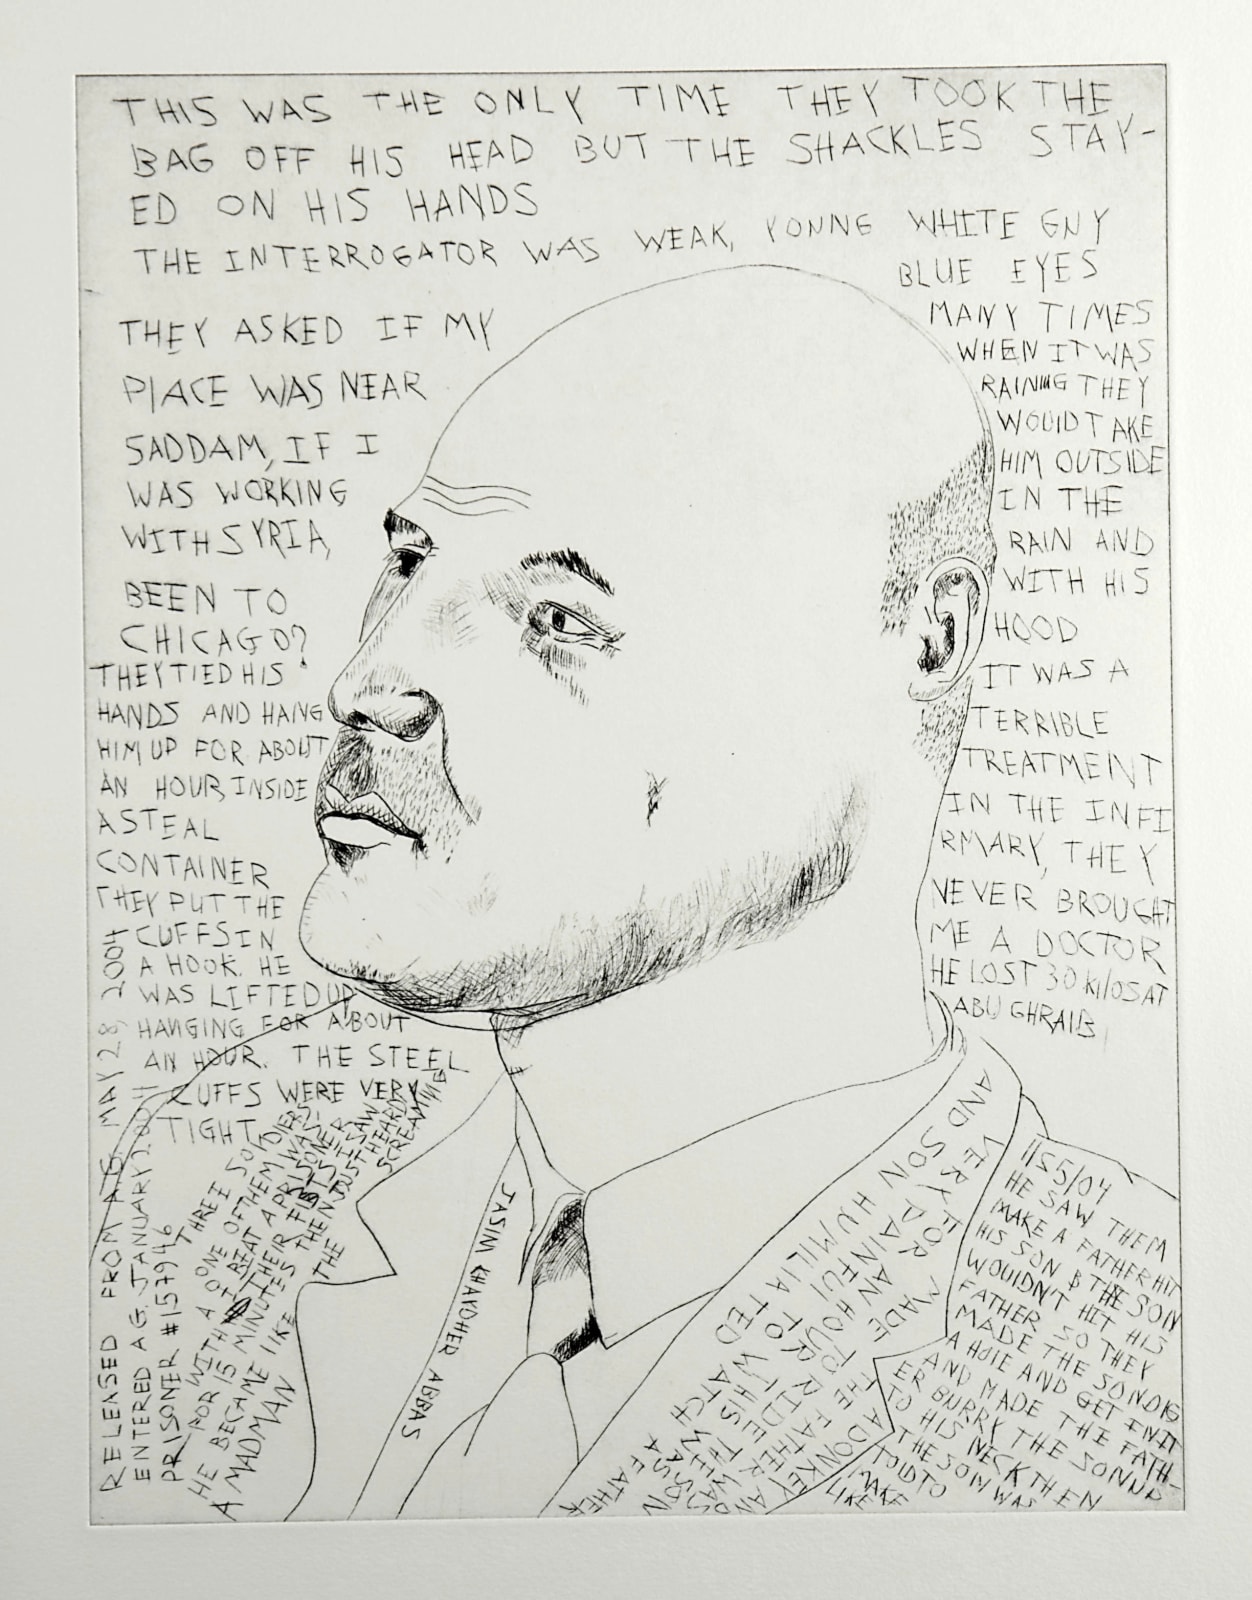 THIS WAS THE ONLY TIME THEY TOOK THE
BAG OFF HIS HEAD BUT THE SHACKLES STAY-
ED ON HIS HANDS
THE INTERROGATOR WAS WEAK, YONNG WHITE GNY
BLUE EYES
THEY ASKED IF MY
PLACE WAS NEAR
SADDAM, IF I
WAS WORKING
WITH SYRIA,
BEEN TO
CHICAGO?
THEY TIED HIS
HANDS AND HANG
HIM UP FOR ABOUT
AN HOUR, INSIDE
A STEAL
CONTAINER
THEY PUT THE
CUFFS IN
A HOOK. HE
WAS LIFTED UP
HANGING FOR ABOUT
AN HOUR. THE STEEL
CUFFS WERE VERY
TIGHT
MANY TIMES
WHEN IT WAS
RAINING THEY
WOULD TAKE
HIM OUTSIDE
IN THE
RAIN AND
WITH HIS
HOOD
IT WAS A
TERRIBLE
TREATMENT
IN THE INFI
RMARY, THEY
NEVER BROUGHT
ME A DOCTOR
HE LOST 30 KILOS AT
ABU GHRAIB
RELEASED FROM A.G. MAY 28 2004
ENTERED A.G. JANUARY 2004
PRISONER #157946
THREE SOLDIERS
ONE OF THEM WAS
BEAT A PRISONER
FOR 15 MINUTES
HE BECAME LIKE
A MADMAN
THEN I JUST HEARD
THE SCREAMING
JASIM KHAYDHER ABBAS
11/25/04
HE SAW THEM
MAKE A FATHER HIT
HIS SON & THE SON
WOULDN'T HIT HIS
FATHER SO THEY
MADE THE SON DIG
A HOLE AND GET IN IT
AND MADE THE FATH-
ER BURRY THE SON UP
TO HIS NECK THEN
THE SON WAS
TOLD TO
MAKE
LIKE
A DONKEY AN
D THE FATHER
MADE TO RIDE
FOR AN HOUR THIS WAS
VERY PAINFUL TO THE
AND HUMILIATED
SON
WATCH
A FATHER